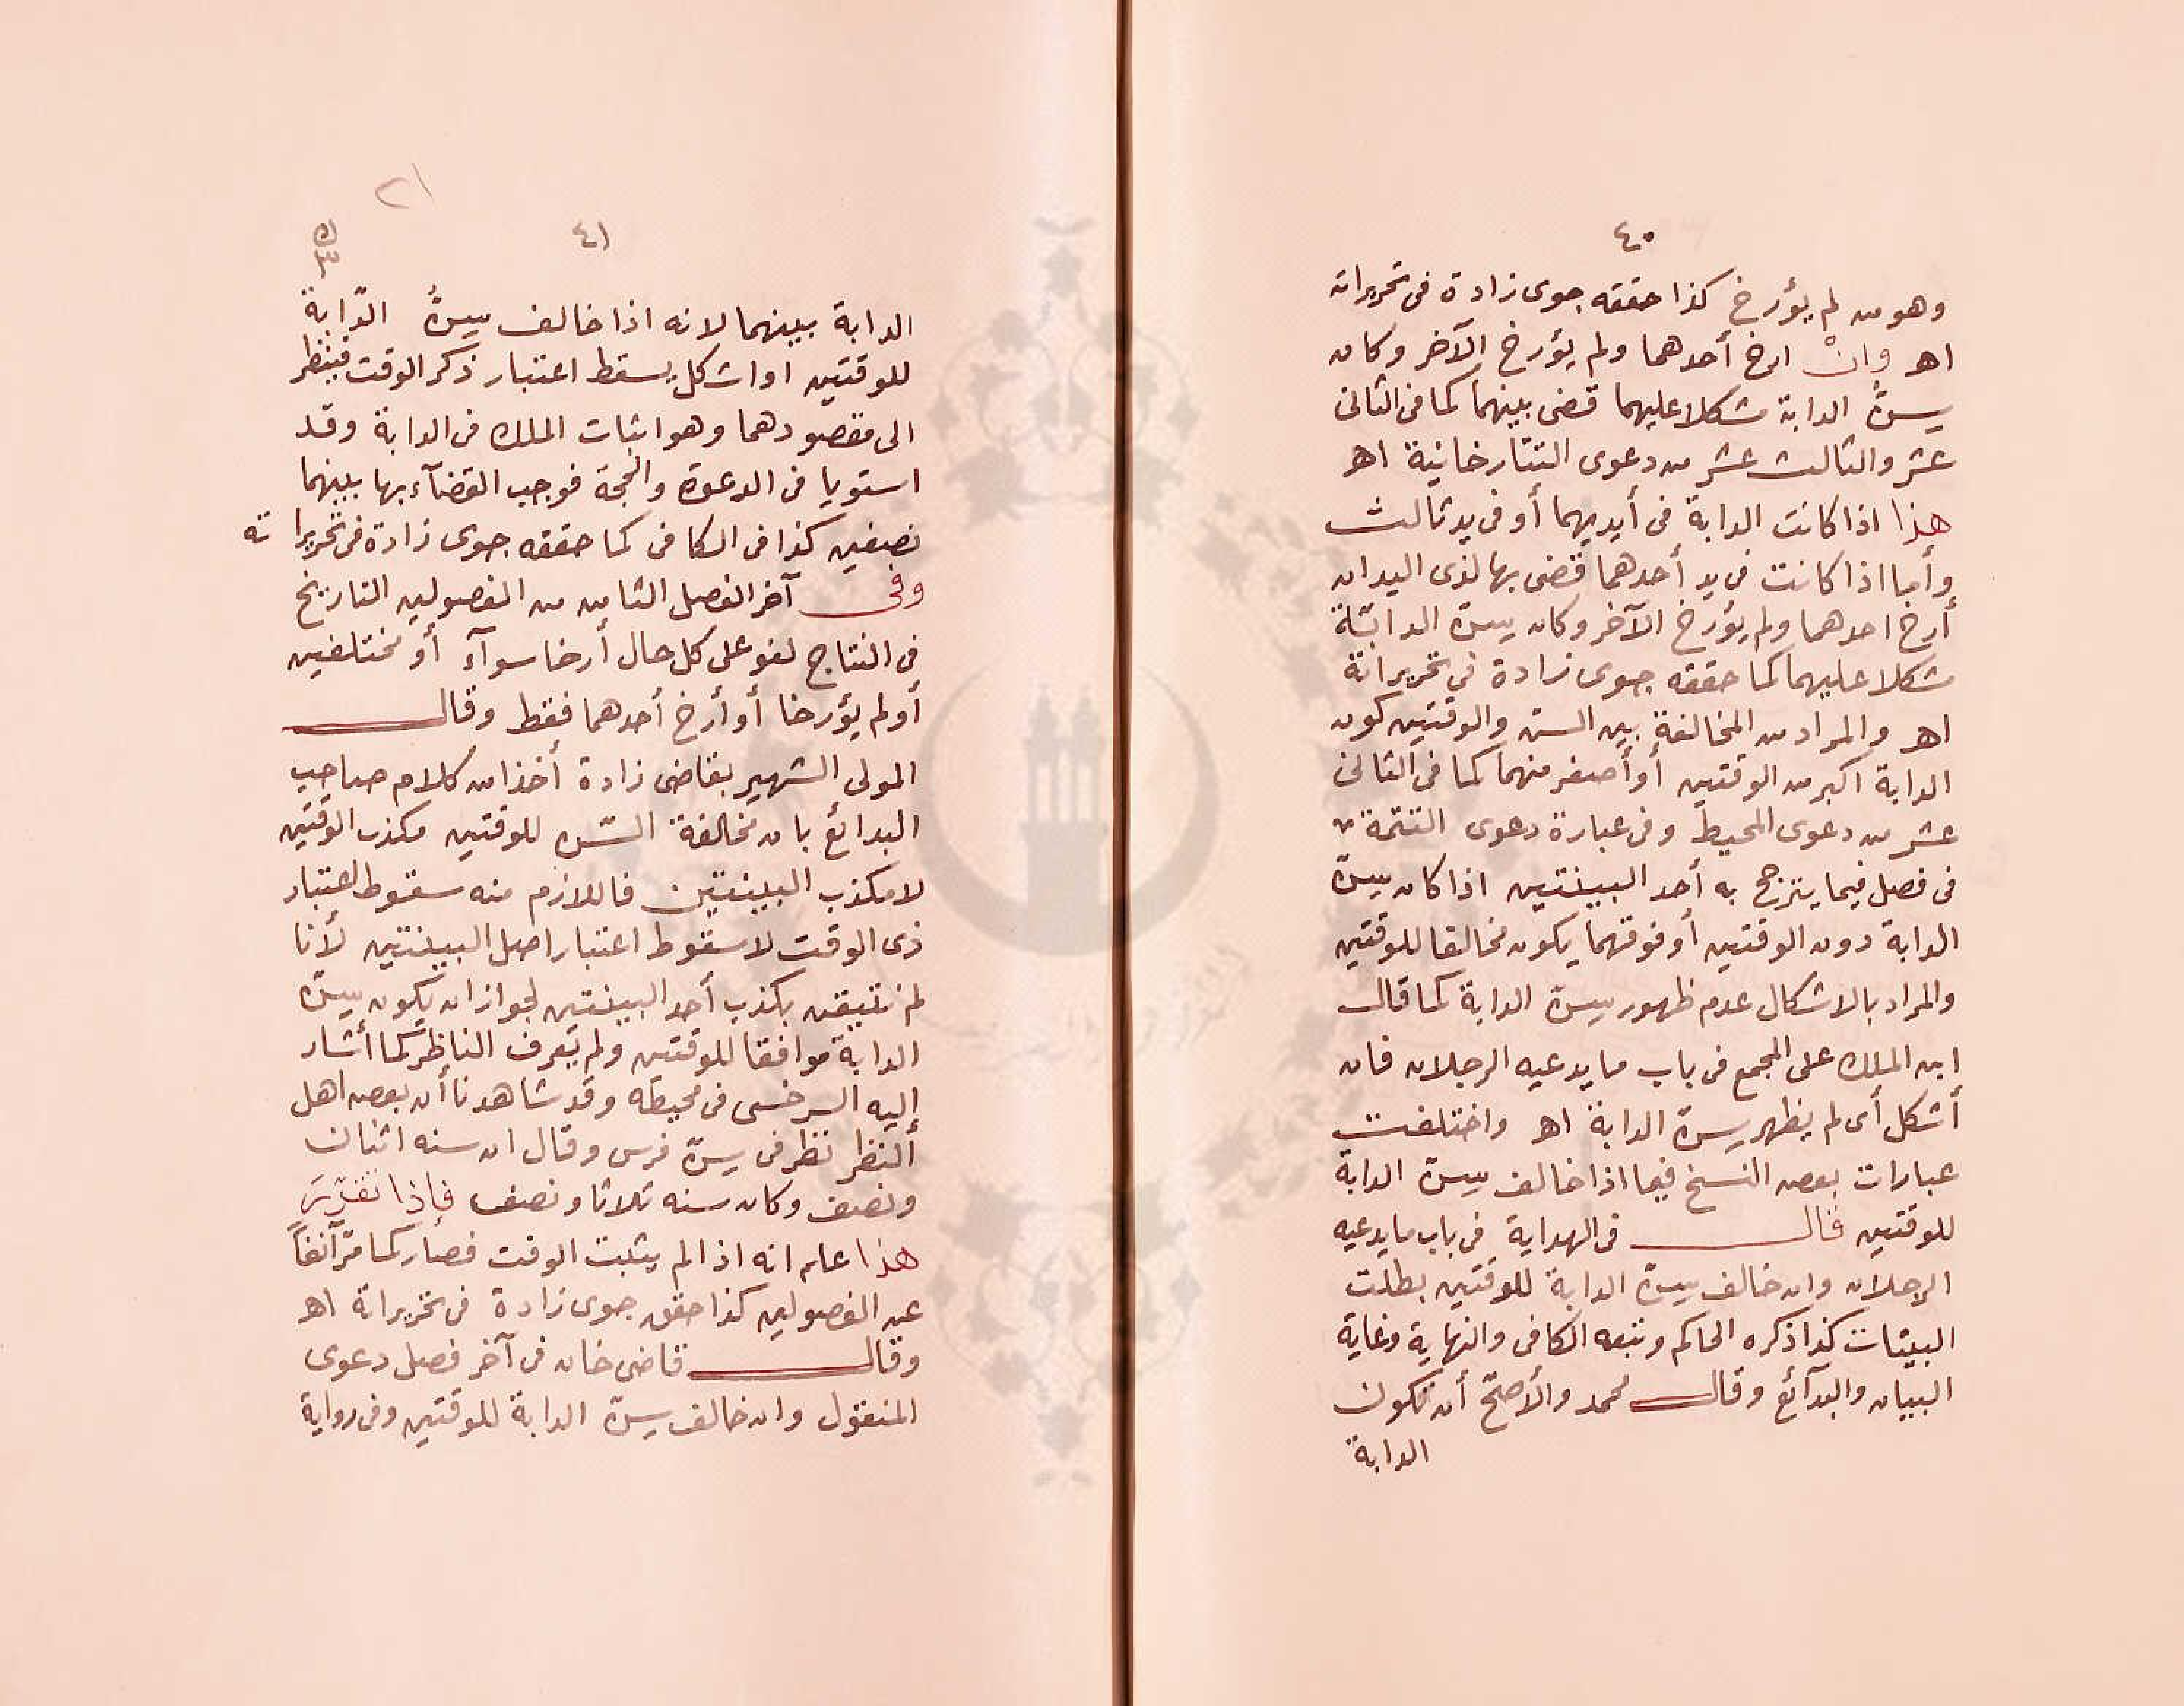 ٤٠
وهو من لم يؤرخ كذا حققه جوى زادة فى تحريراته
اهـ وانْ ارخ أحدهما ولم يؤرخ الآخر وكان
سنّ الدابة مشكلا عليهما قضى بينهما كما فى الثانى
عشر والثالث عشر من دعوى التتارخانية اهـ
هذا اذا كانت الدابة فى أيديهما أو فى يد ثالث
وأما اذا كانت فى يد أحدهما قضى بها لذى اليد ان
أرخ احدهما ولم يؤرخ الآخر وكان سنّ الدابّة
مشكلا عليهما كما حققه جوى زادة فى تحريراته
اهـ والمراد من المخالفة بين السنّ والوقتين كون
الدابة اكبر من الوقتين أو أصغر منهما كما فى الثانى
عشر من دعوى المحيط وفى عبارة دعوى التتمة
فى فصل فيما يترجح به أحد البينتين اذا كان سنّ
الدابة دون الوقتين أو فوقهما يكون مخالفا للوقتين
والمراد بالاشكال عدم ظهور سنّ الدابة كما قال
ابن الملك على المجمع فى باب ما يدعيه الرجلان فان
أشكل أى لم يظهر سنّ الدابة اهـ واختلفت
عبارات بعض النسخ فيما اذا خالف سنّ الدابة
للوقتين قال فى الهداية فى باب ما يدعيه
الرجلان وان خالف سنّ الدابة للوقتين بطلت
البينات كذا ذكره الحاكم وتبعه الكافى والنهاية وغاية
البيان والبدآئع وقال محمد والأصحّ أن تكون
الدابة
٢١
٤١
الدابة بينهما لانه اذا خالف سنُّ الدّابة
للوقتين او اشكل يسقط اعتبار ذكر الوقت فينظر
الى مقصودهما وهو اثبات الملك فى الدابة وقد
استويا فى الدعوة والحجة فوجب القضآء بها بينهما
نصفين كذا فى الكافى كما حققه جوى زادة فى تحريراته
وفى آخر الفصل الثامن من الفصولين التاريخ
فى النتاج لغو على كل حال أرخا سوآء أو مختلفين
أو لم يؤرخا أو أرخ أحدهما فقط وقال
المولى الشهير بقاضى زادة أخذا من كلام صاحب
البدائع بان مخالفة السّن للوقتين مكذب الوقتين
لا مكذب البينتين فاللازم منه سقوط اعتبار
ذى الوقت لا سقوط اعتبار اصل البينتين لأنا
لم نتيقن بكذب أحد البينتين لجواز ان يكون سنّ
الدابة موافقا للوقتين ولم يعرف الناظر كما أشار
إليه السرخسى فى محيطه وقد شاهدنا أن بعض اهل
النظر نظر فى سنّ فرس وقال ان سنه اثنان
ونصف وكان سنه ثلاثا ونصف فإذا تقرّر
هذا علم انه اذا لم يثبت الوقت فصار كما مرّ آنفاً
عن الفصولين كذا حقق جوى زادة فى تحريراته اهـ
وقال قاضى خان فى آخر فصل دعوى
المنقول وان خالف سنّ الدابة للوقتين وفى رواية